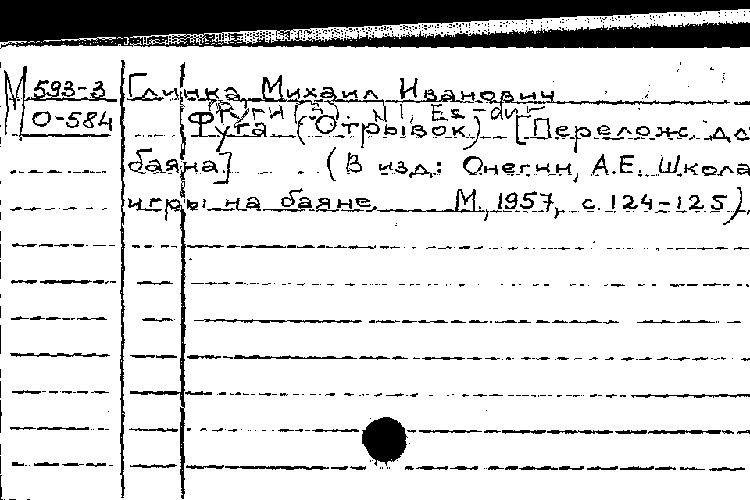 М 593-3 Глинка Михаил Иванович
Фуги (3). N 1, Es-dur
О-584 Фуга (Отрывок) [Перелож. дл
баяна] (В изд.: Онегин, А.Е. Школа
игры на баяне. М., 1957, с. 124-125).